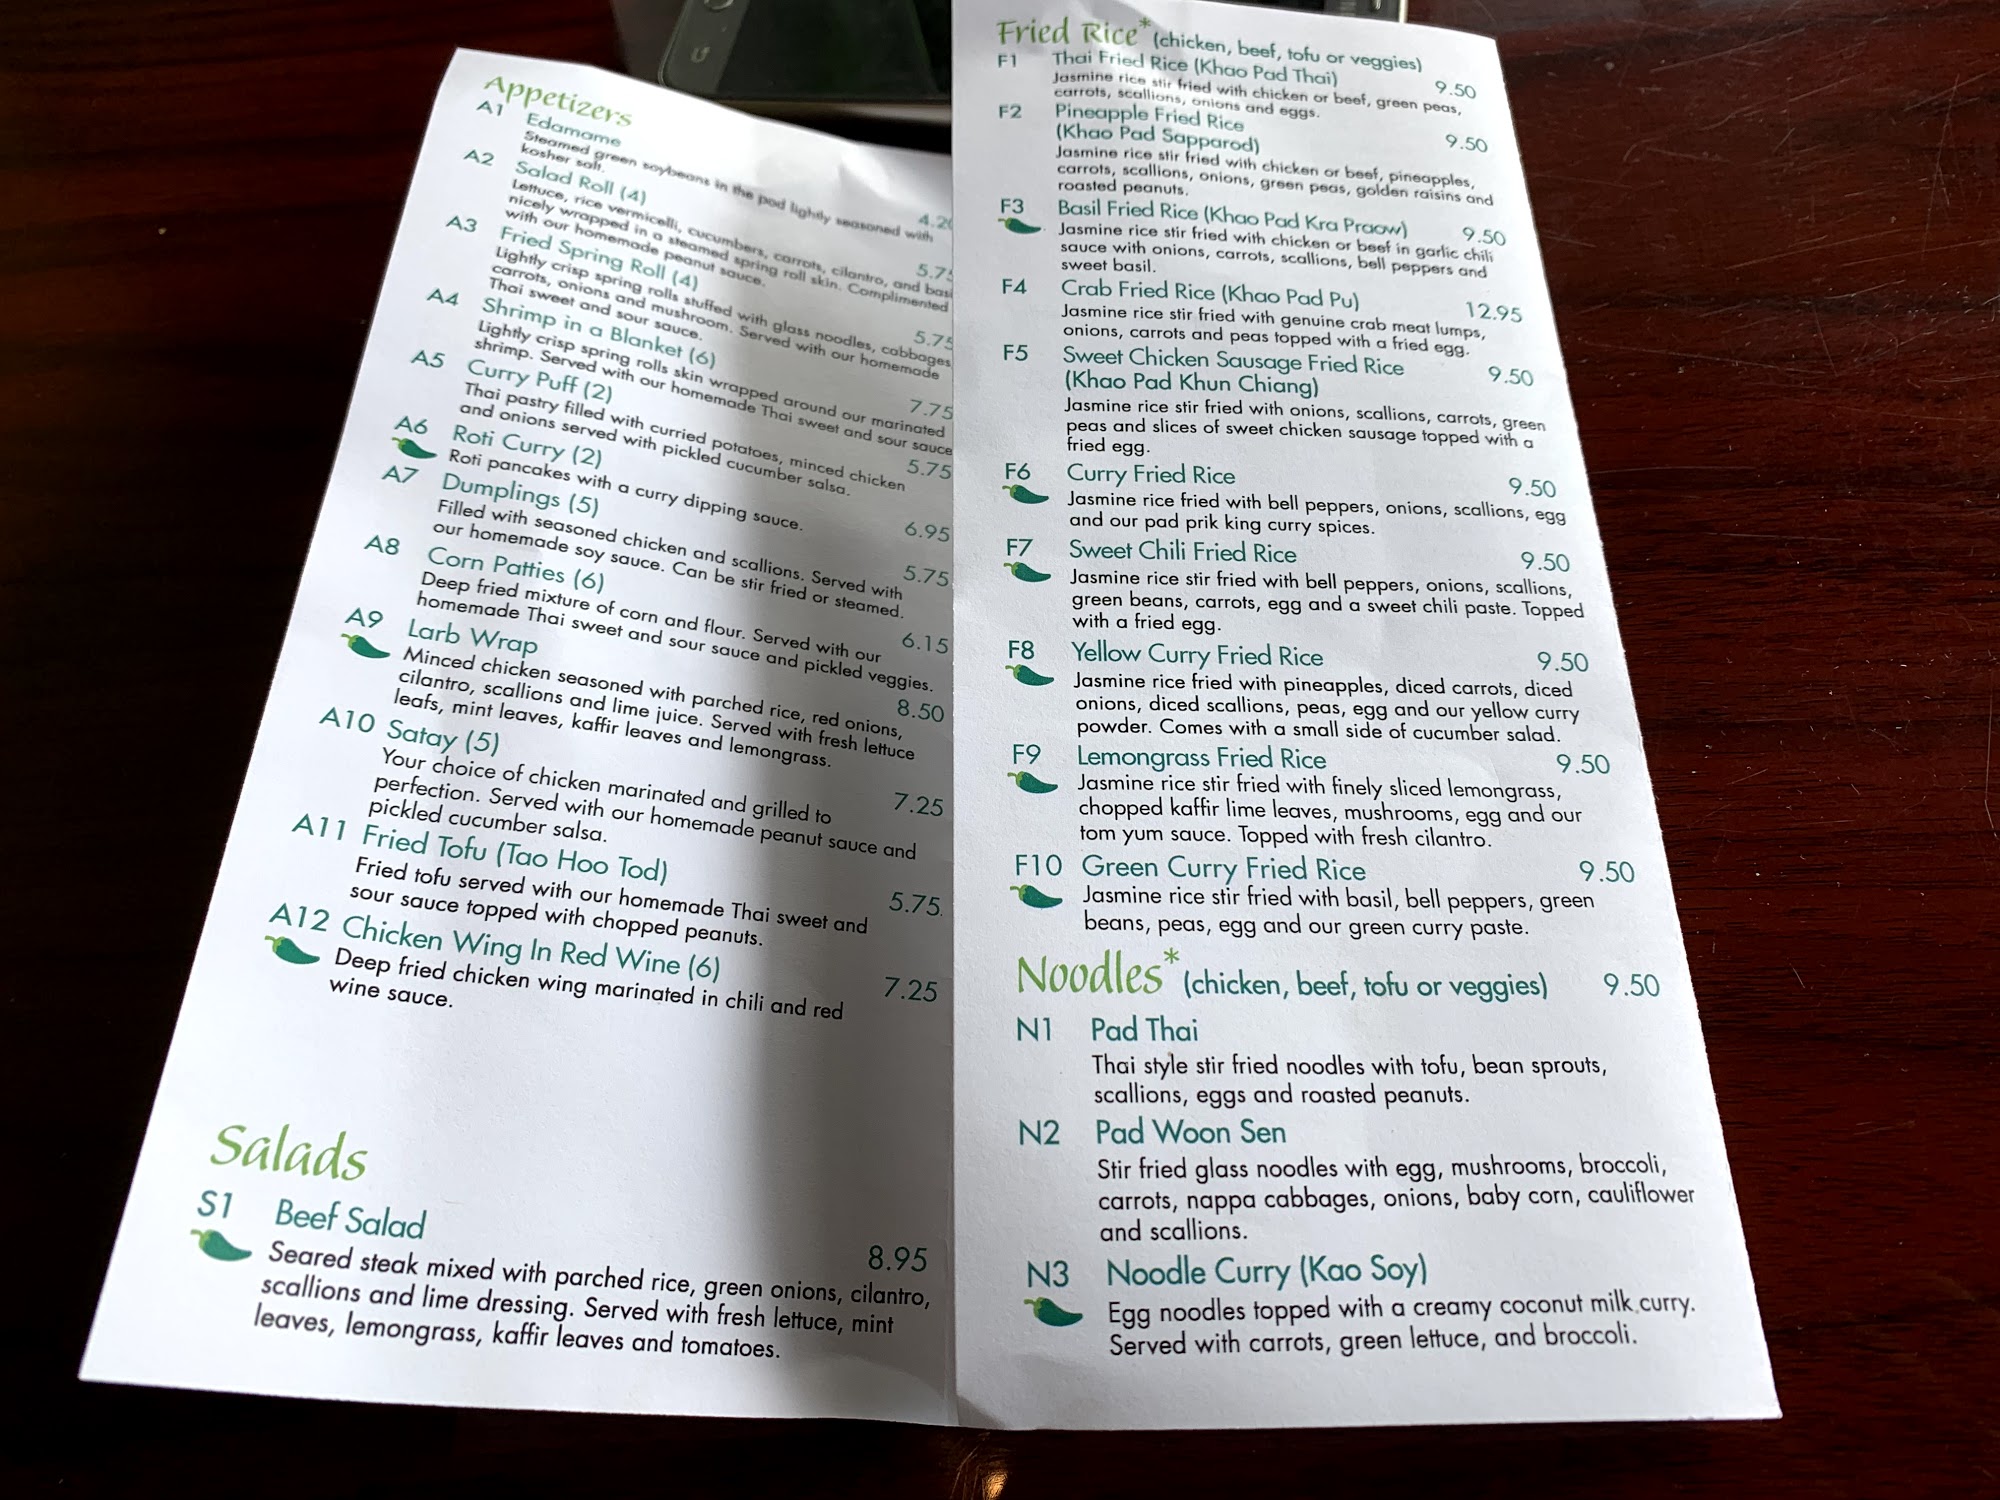 Appetizers
A1 Edamame 4.20
Steamed green soybeans in the pod lightly seasoned with
kosher salt.
A2 Salad Roll (4) 5.75
Lettuce, rice vermicelli, cucumbers, carrots, cilantro, and basil
nicely wrapped in a steamed spring roll skin. Complimented
with our homemade peanut sauce.
A3 Fried Spring Roll (4) 5.75
Lightly crisp spring rolls stuffed with glass noodles, cabbages
carrots, onions and mushroom. Served with our homemade
Thai sweet and sour sauce.
A4 Shrimp in a Blanket (6) 7.75
Lightly crisp spring rolls skin wrapped around our marinated
shrimp. Served with our homemade Thai sweet and sour sauce
A5 Curry Puff (2) 5.75
Thai pastry filled with curried potatoes, minced chicken
and onions served with pickled cucumber salsa.
A6 Roti Curry (2) 6.95
Roti pancakes with a curry dipping sauce.
A7 Dumplings (5) 5.75
Filled with seasoned chicken and scallions. Served with
our homemade soy sauce. Can be stir fried or steamed.
A8 Corn Patties (6) 6.15
Deep fried mixture of corn and flour. Served with our
homemade Thai sweet and sour sauce and pickled veggies.
A9 Larb Wrap 8.50
Minced chicken seasoned with parched rice, red onions,
cilantro, scallions and lime juice. Served with fresh lettuce
leafs, mint leaves, kaffir leaves and lemongrass.
A10 Satay (5) 7.25
Your choice of chicken marinated and grilled to
perfection. Served with our homemade peanut sauce and
pickled cucumber salsa.
A11 Fried Tofu (Tao Hoo Tod) 5.75
Fried tofu served with our homemade Thai sweet and
sour sauce topped with chopped peanuts.
A12 Chicken Wing In Red Wine (6) 7.25
Deep fried chicken wing marinated in chili and red
wine sauce.
Salads
S1 Beef Salad 8.95
Seared steak mixed with parched rice, green onions, cilantro,
scallions and lime dressing. Served with fresh lettuce, mint
leaves, lemongrass, kaffir leaves and tomatoes.
Fried Rice* (chicken, beef, tofu or veggies)
F1 Thai Fried Rice (Khao Pad Thai) 9.50
Jasmine rice stir fried with chicken or beef, green peas,
carrots, scallions, onions and eggs.
F2 Pineapple Fried Rice 9.50
(Khao Pad Sapparod)
Jasmine rice stir fried with chicken or beef, pineapples,
carrots, scallions, onions, green peas, golden raisins and
roasted peanuts.
F3 Basil Fried Rice (Khao Pad Kra Praow) 9.50
Jasmine rice stir fried with chicken or beef in garlic chili
sauce with onions, carrots, scallions, bell peppers and
sweet basil.
F4 Crab Fried Rice (Khao Pad Pu) 12.95
Jasmine rice stir fried with genuine crab meat lumps,
onions, carrots and peas topped with a fried egg.
F5 Sweet Chicken Sausage Fried Rice 9.50
(Khao Pad Khun Chiang)
Jasmine rice stir fried with onions, scallions, carrots, green
peas and slices of sweet chicken sausage topped with a
fried egg.
F6 Curry Fried Rice 9.50
Jasmine rice fried with bell peppers, onions, scallions, egg
and our pad prik king curry spices.
F7 Sweet Chili Fried Rice 9.50
Jasmine rice stir fried with bell peppers, onions, scallions,
green beans, carrots, egg and a sweet chili paste. Topped
with a fried egg.
F8 Yellow Curry Fried Rice 9.50
Jasmine rice fried with pineapples, diced carrots, diced
onions, diced scallions, peas, egg and our yellow curry
powder. Comes with a small side of cucumber salad.
F9 Lemongrass Fried Rice 9.50
Jasmine rice stir fried with finely sliced lemongrass,
chopped kaffir lime leaves, mushrooms, egg and our
tom yum sauce. Topped with fresh cilantro.
F10 Green Curry Fried Rice 9.50
Jasmine rice stir fried with basil, bell peppers, green
beans, peas, egg and our green curry paste.
Noodles* (chicken, beef, tofu or veggies) 9.50
N1 Pad Thai
Thai style stir fried noodles with tofu, bean sprouts,
scallions, eggs and roasted peanuts.
N2 Pad Woon Sen
Stir fried glass noodles with egg, mushrooms, broccoli,
carrots, nappa cabbages, onions, baby corn, cauliflower
and scallions.
N3 Noodle Curry (Kao Soy)
Egg noodles topped with a creamy coconut milk curry.
Served with carrots, green lettuce, and broccoli.